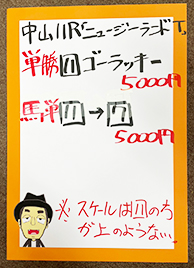 中山11R「ニュージーランドT」
単勝 11 ゴーラッキー
5000円
馬単 11 → 7
5000円
※ スケールは11のち
が上のような…